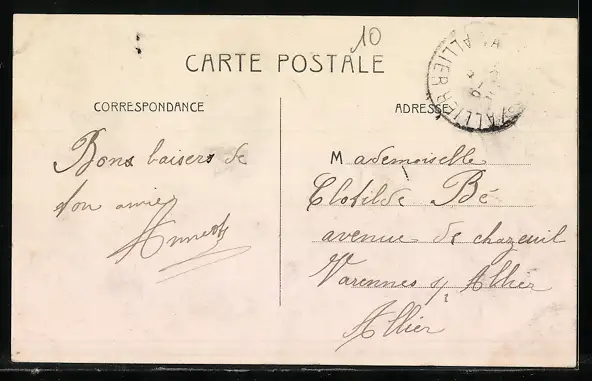 10
CARTE POSTALE
CORRESPONDANCE
ADRESSE
Bons baisers de
ton amie
Mademoiselle
Clotilde Bé
avenue de chazeuil
Varennes s/ Allier
Allier
S/ALLIER
ALLIER